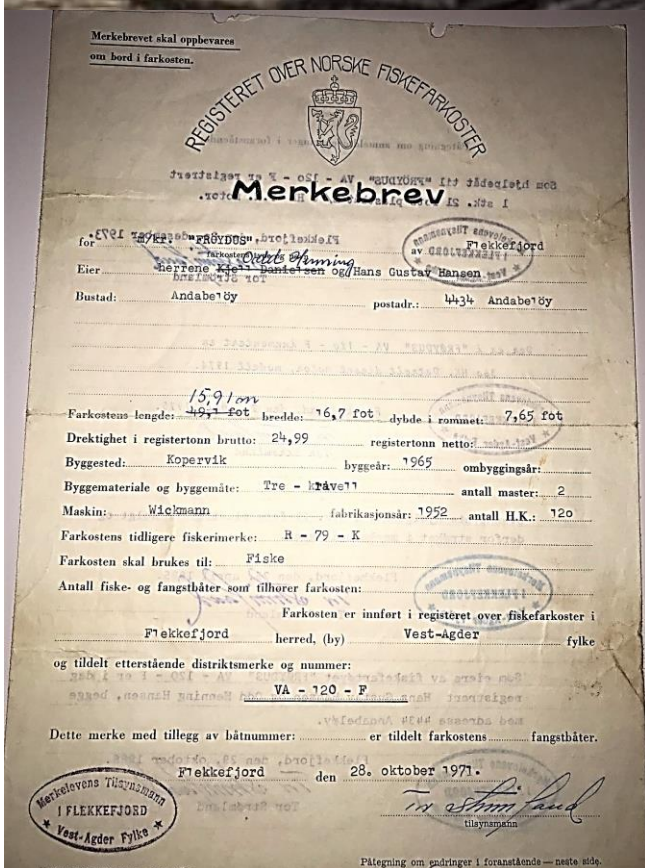 Merkebrevet skal oppbevares
om bord i farkosten.
REGISTERET OVER NORSKE FISKEFARKOSTER
Merkebrev
for M/kr. "FRÖYDUS", av Flekkefjord
farkostens
Odd Henning
Eier herrene Kjell Danielsen og Hans Gustav Hansen
Bustad: Andabeløy postadr.: 4434 Andabeløy
15,91 m
Farkostens lengde: 49,1 fot bredde: 16,7 fot dybde i rommet: 7,65 fot
Drektighet i registertonn brutto: 24,99 registertonn netto:
Byggested: Kopervik byggeår: 1965 ombyggingsår:
Byggemateriale og byggemåte: Tre - kravell antall master: 2
Maskin: Wickmann fabrikasjonsår: 1952 antall H.K.: 120
Farkostens tidligere fiskerimerke: R - 79 - K
Farkosten skal brukes til: Fiske
Antall fiske- og fangstbåter som tilhører farkosten:
Farkosten er innført i registeret over fiskefarkoster i
Flekkefjord herred, (by) Vest-Agder fylke
og tildelt etterstående distriktsmerke og nummer:
VA - 120 - F
Dette merke med tillegg av båtnummer: er tildelt farkostens fangstbåter.
Flekkefjord den 28. oktober 1971.
Merkelovens Tilsynsmann
I FLEKKEFJORD
★ Vest-Agder Fylke ★
tilsynsmann
Påtegning om endringer i foranstående — neste side.